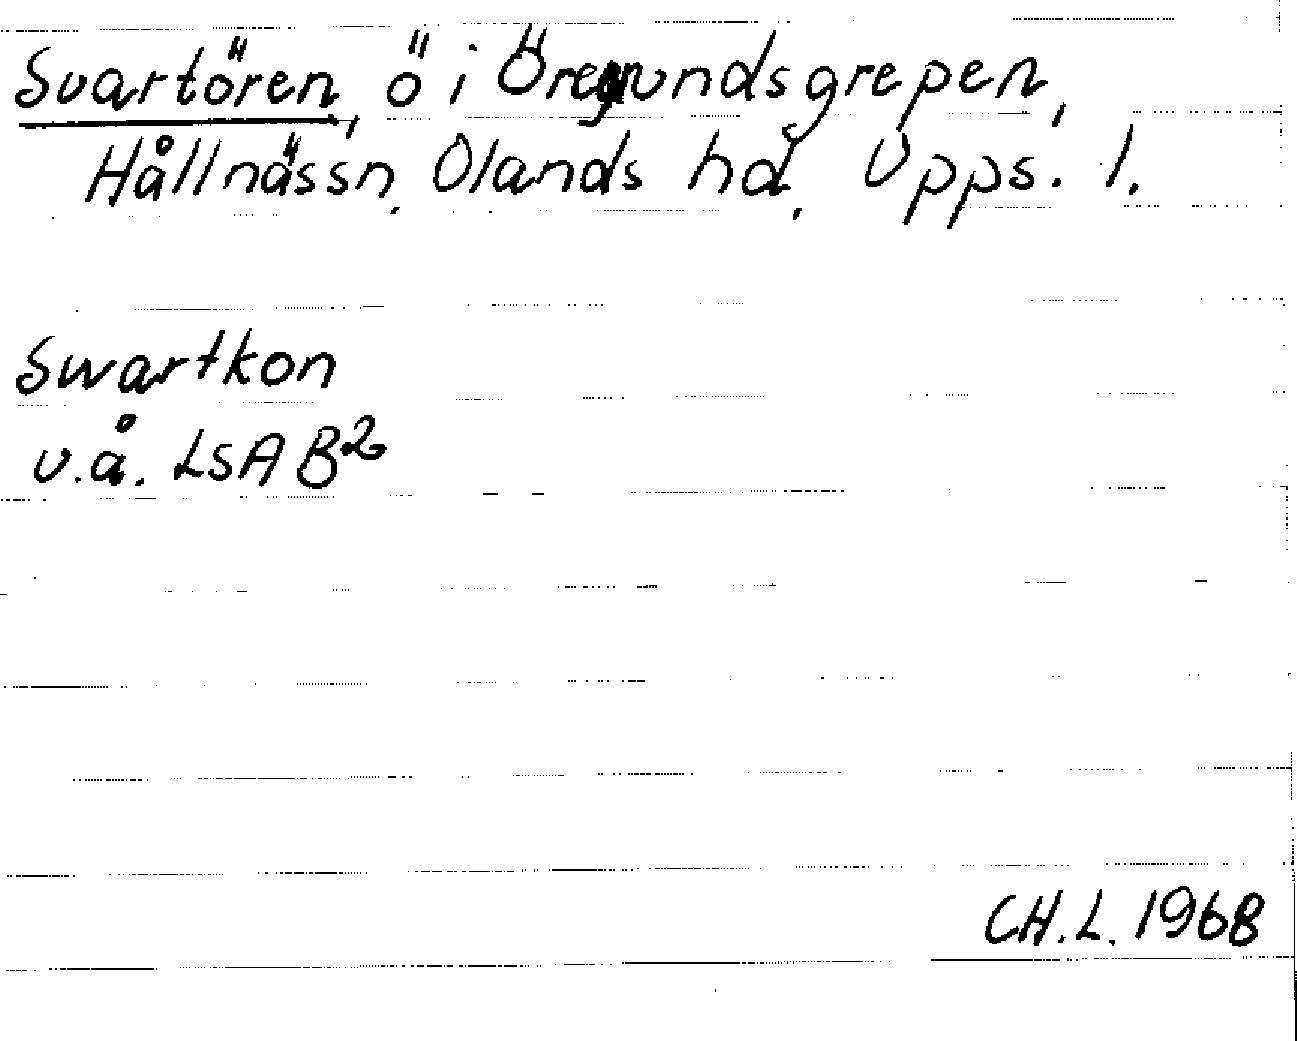 Svartören, ö i Öregrundsgrepen,
Hållnässn, Olands hd, Upps. l.
Swartkon
u.å. LSA B2
CH.L. 1968